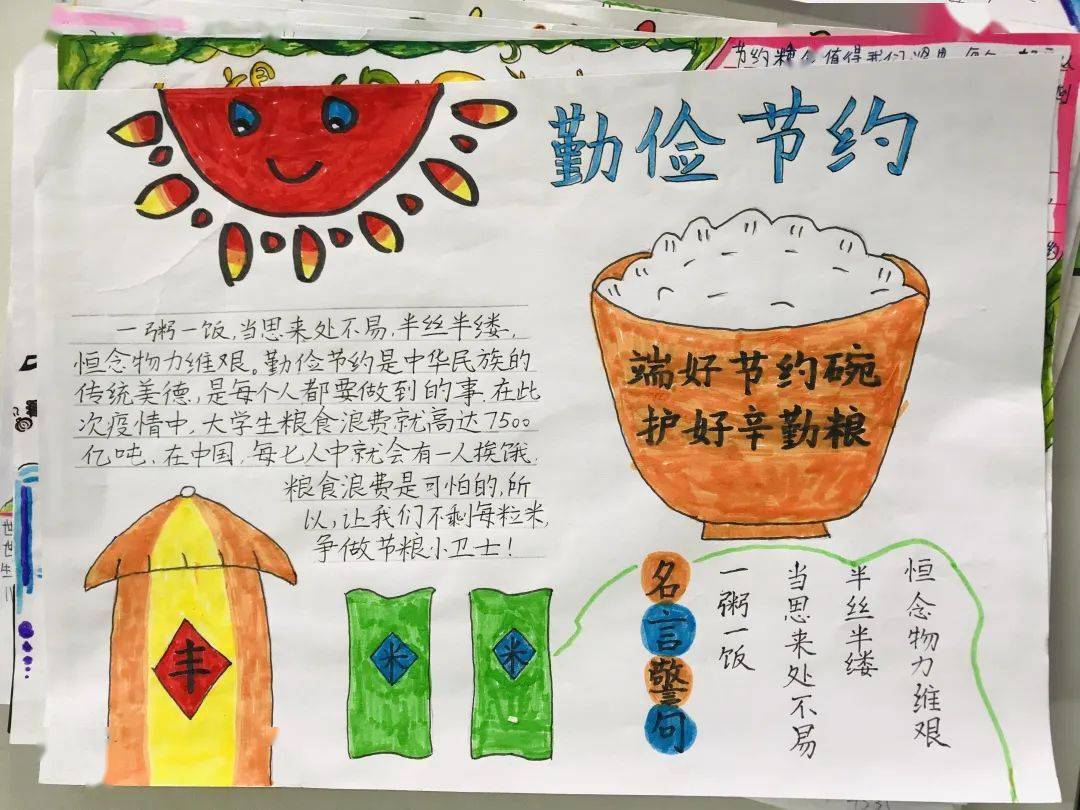 勤俭节约
一粥一饭,当思来处不易,半丝半缕,
恒念物力维艰。勤俭节约是中华民族的
传统美德,是每个人都要做到的事.在此
次疫情中,大学生粮食浪费就高达7500
亿吨.在中国,每七人中就会有一人挨饿.
粮食浪费是可怕的,所
以,让我们不剩每粒米,
争做节粮小卫士!
端好节约碗
护好辛勤粮
丰
米
米
名言警句
一粥一饭
当思来处不易
半丝半缕
恒念物力维艰